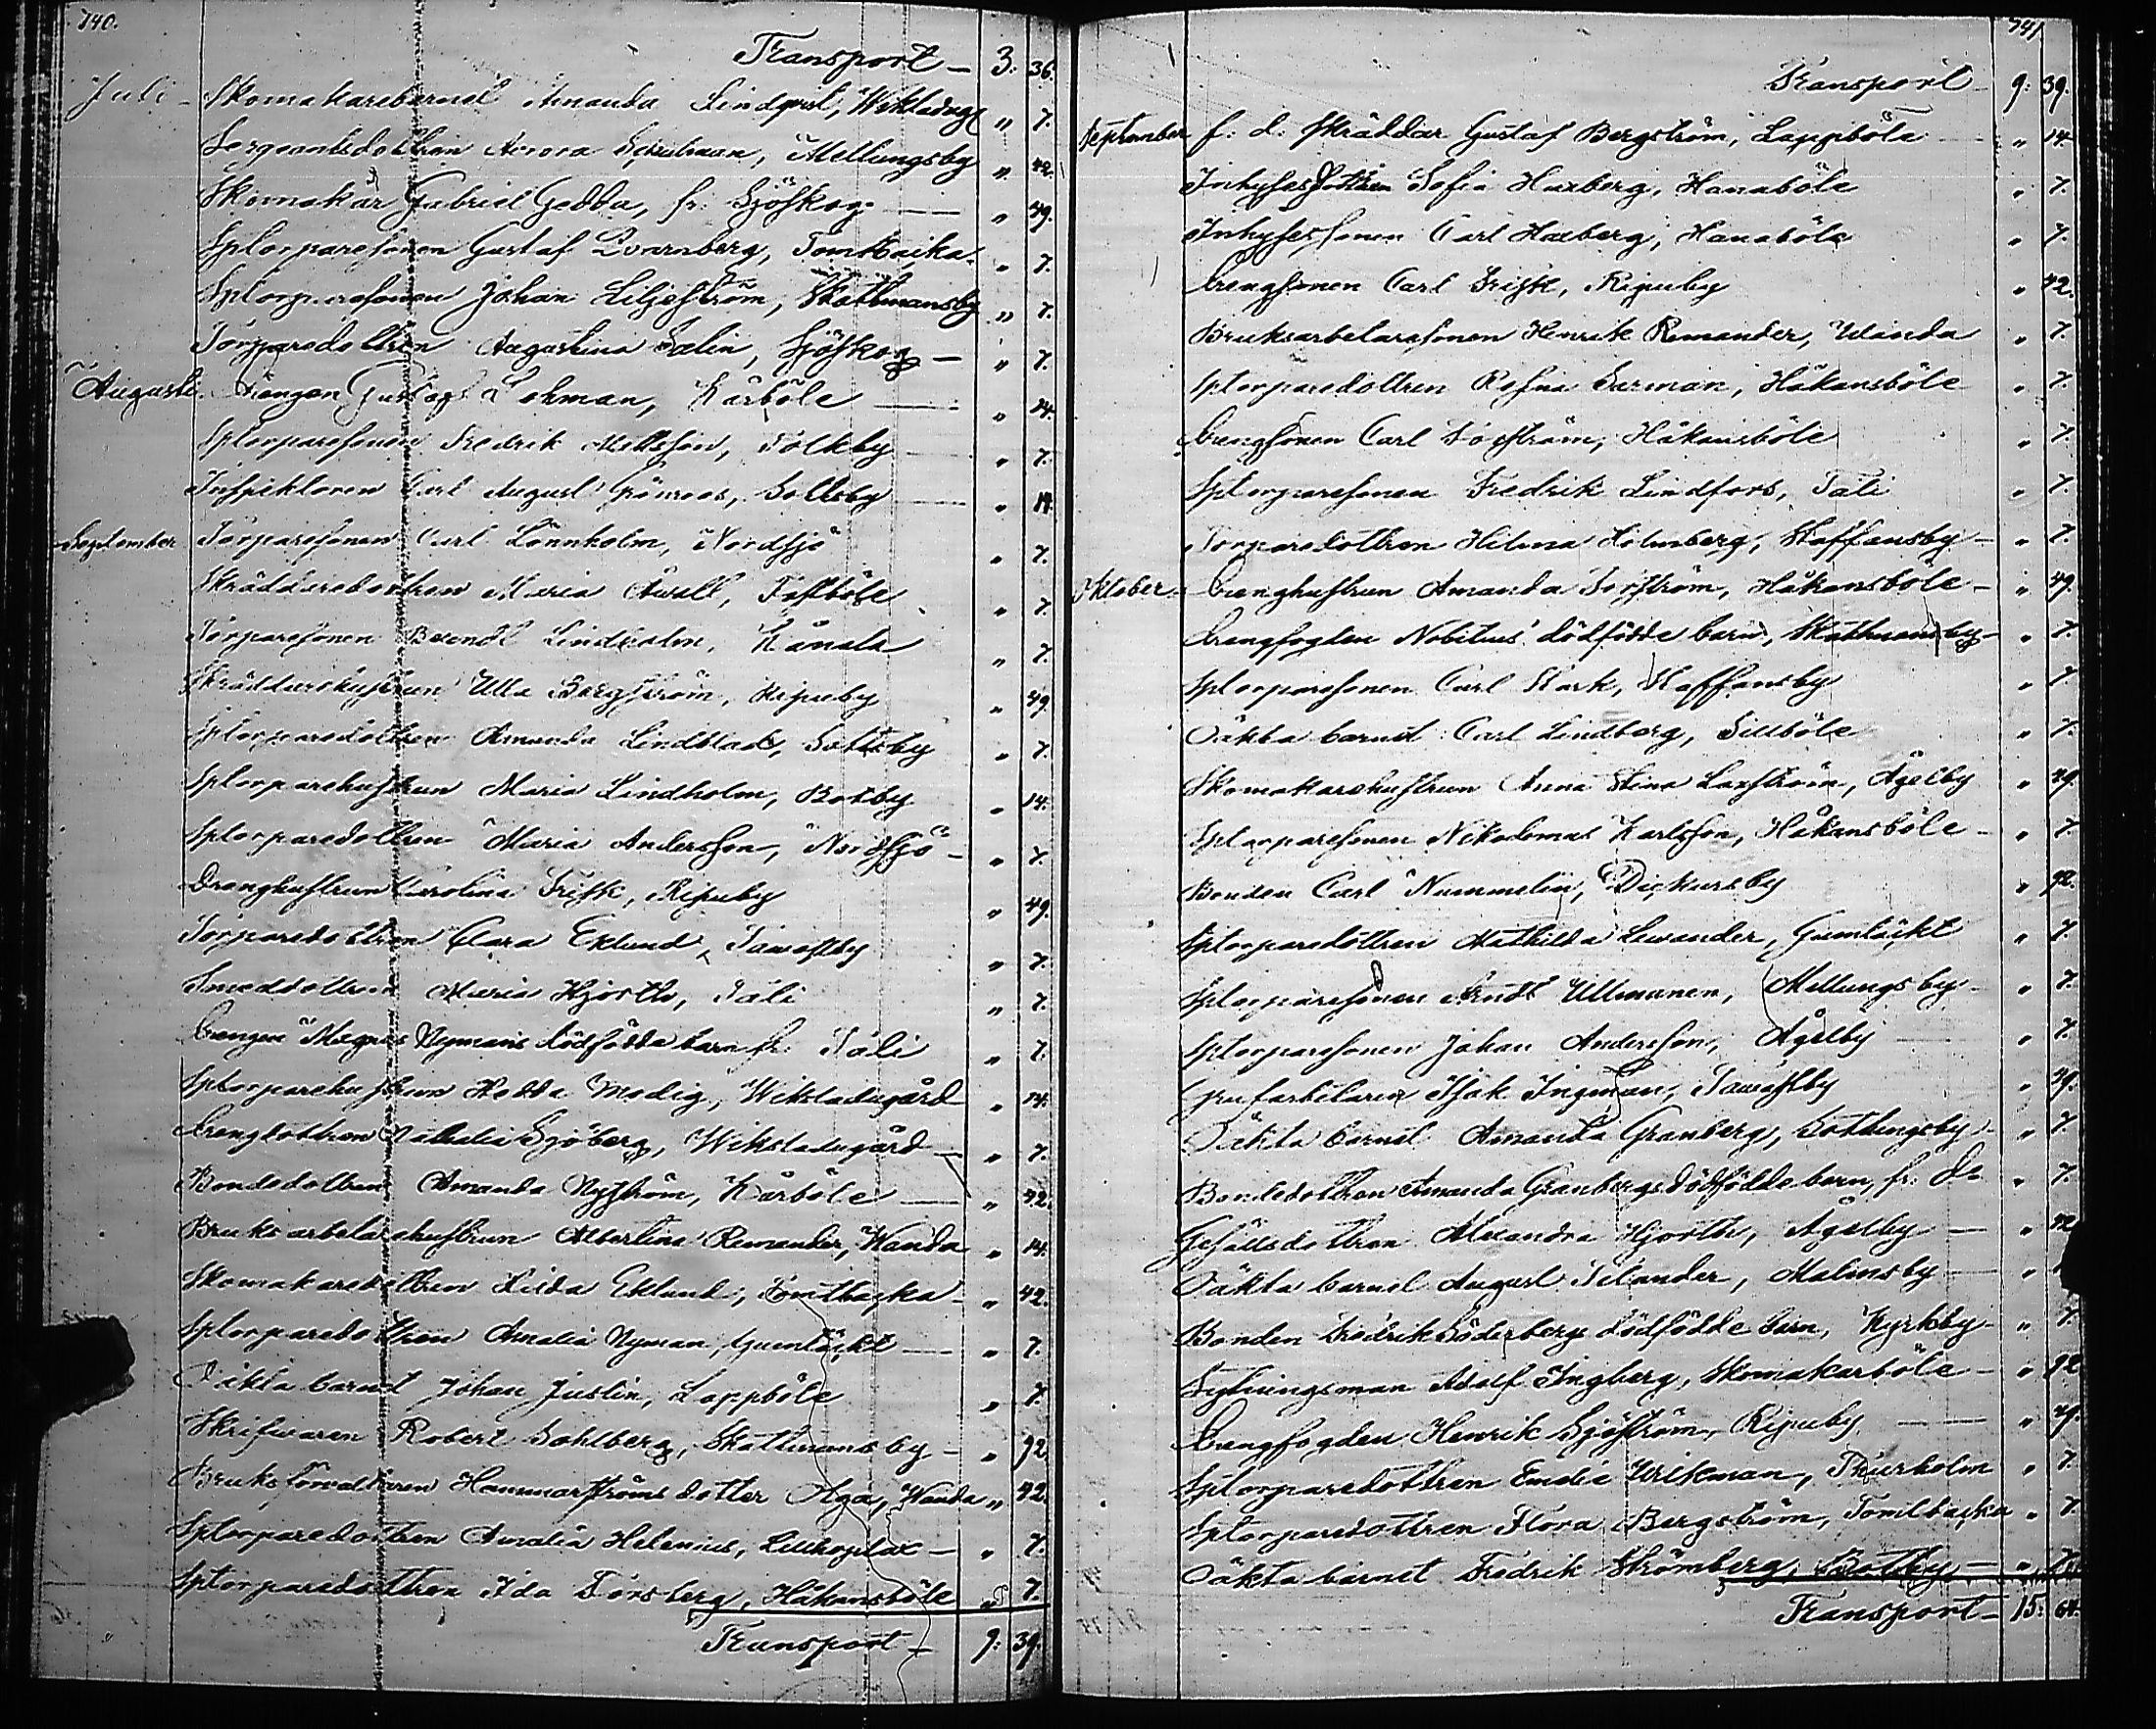 740.
Transport - 3: 36.
Juli - Skomakarebarnet Amanda Lindqvist, Wikladug[] " 7.
Sergeantsdottren Aurora Schulman, Mellungsby " 42.
Skomakar Gabriel Gedda, fr. Sjöskog - " 49.
Sptorparesonen Gustaf Qvarnberg, Tomtbacka. " 7.
Sptorparesonen Johan Liljeström, Skattmansby " 7.
Torparedottren Augustina Salin, Sjöskog - " 7.
Augusti. Drängen Gustaf Lohman, Kårböle - " 14.
Sptorparesonen Fredrik Mattsson, Tolkby " 7.
Inspektoren Carl August Grönroos, Sottsby " 14
September Torparesonen Carl Lönnholm, Nordsjö " 7.
Skräddaredottren Maria Awell, Fastböle " 7.
Torparesonen Berndt Lindholm, Kånala " 7.
Skräddarehustrun Ulla Bergström, Ripuby " 49.
Sptorparedottren Amanda Lindblad, Sottsby " 7.
Sptorparehustrun Maria Lindholm, Botby " 14.
Sptorparedottren Maria Andersson, Nordsjö - " 7.
Drenghustrun Carolina Frisk, Ripuby " 49.
Torparedottren Clara Eklund, Tawastby " 7.
Smeddottren Maria Hjorth, Tali " 7.
Drengen Magnus Nymans dödfödda barn fr. Tali " 7.
Sptorparehustrun Hedda Modig, Wikladugård " 14.
Drengdottren Nathalia Sjöberg, Wikladugård - " 7.
Bondedottren Amanda Nyström, Kårböle - " 42.
Bruksarbetarehustrun Albertina Remander, Wanda " 14.
Skomakaredottren Hilda Eklund, Tomtbacka - " 42.
Sptorparedottren Amalia Nyman, Gumtäckt - " 7.
Oäkta barnet Johan Juslin, Lappböle " 7.
Skrifwaren Robert Sohlberg, Skattmansby - " 92
Bruksförvaltaren Hammarströms dotter Aga, Wanda " 42.
Sptorparedottren Amalia Helenius, Lillhoplax - " 7.
Sptorparedottren Ida Forsberg, Håkansböle " 7.
Transport - 9: 39.
741
Transport - 9: 39.
September f: d: skräddar Gustaf Bergström, Lappböle - " 14.
Inhysesdottren Sofia Haxberg, Hanaböle " 7.
Inhysessonen Carl Haxberg, Hanaböle " 7.
Drengsonen Carl Frisk, Ripuby " 42.
Bruksarbetaresonen Henrik Remander, Wanda " 7.
Sptorparedottren Rosina Sarman, Håkansböle " 7.
Drengsonen Carl Forström, Håkansböle " 7.
Sptorparesonen Fredrik Lindfors, Tali " 7.
Torparedottren Hilma Holmberg, Staffansby - " 7.
Oktober. Drenghustrun Amanda Forström, Håkansböle - " 49.
Drengfogden Nobelius' dödfödde barn, Skattmansby - " 7.
Sptorparesonen Carl Stark, Staffansby " 7.
Oäkta barnet Carl Lindberg, Sillböle " 7.
Skomakarehustrun Anna Stina Laxström, Ågelby " 49.
Sptorparesonen Nikodemus Karlsson, Håkansböle - " 7.
Bonden Carl Nummelin, Dickursby " 92.
Sptorparedottren Mathilda Lewander, Gumtäckt " 7.
Sptorparesonen Berndt Ullmanen, Mellungsby - " 7.
Sptorparesonen Johan Andersson, Ågelby - " 7.
Grufarbetaren Isak Ingman, Tawastby " 49.
Oäkta barnet Amanda Granberg, Sottungsby " 7.
Bondedottren Amanda Granbergs dödfödde barn, fr: do " 7.
Gesällsdottren Alexandra Hjorth, Ågelby - " 42
Oäkta barnet August Telander, Malmsby - "
Bonden Fredrik Söderbergs dödfödde barn, Kyrkby - " 7.
Sytningsman Adolf Ingberg, Skomakarböle - " 92
Drengfogden Henrik Sjöström, Ripuby - " 49.
Sptorparedottren Emelie Wikman, Thurholm " 7.
Sptorparedottren Flora Bergström, Tomtbacka " 7.
Oäkta barnet Fredrik Strömberg, Botby - " 7.
Transport - 15: 64.